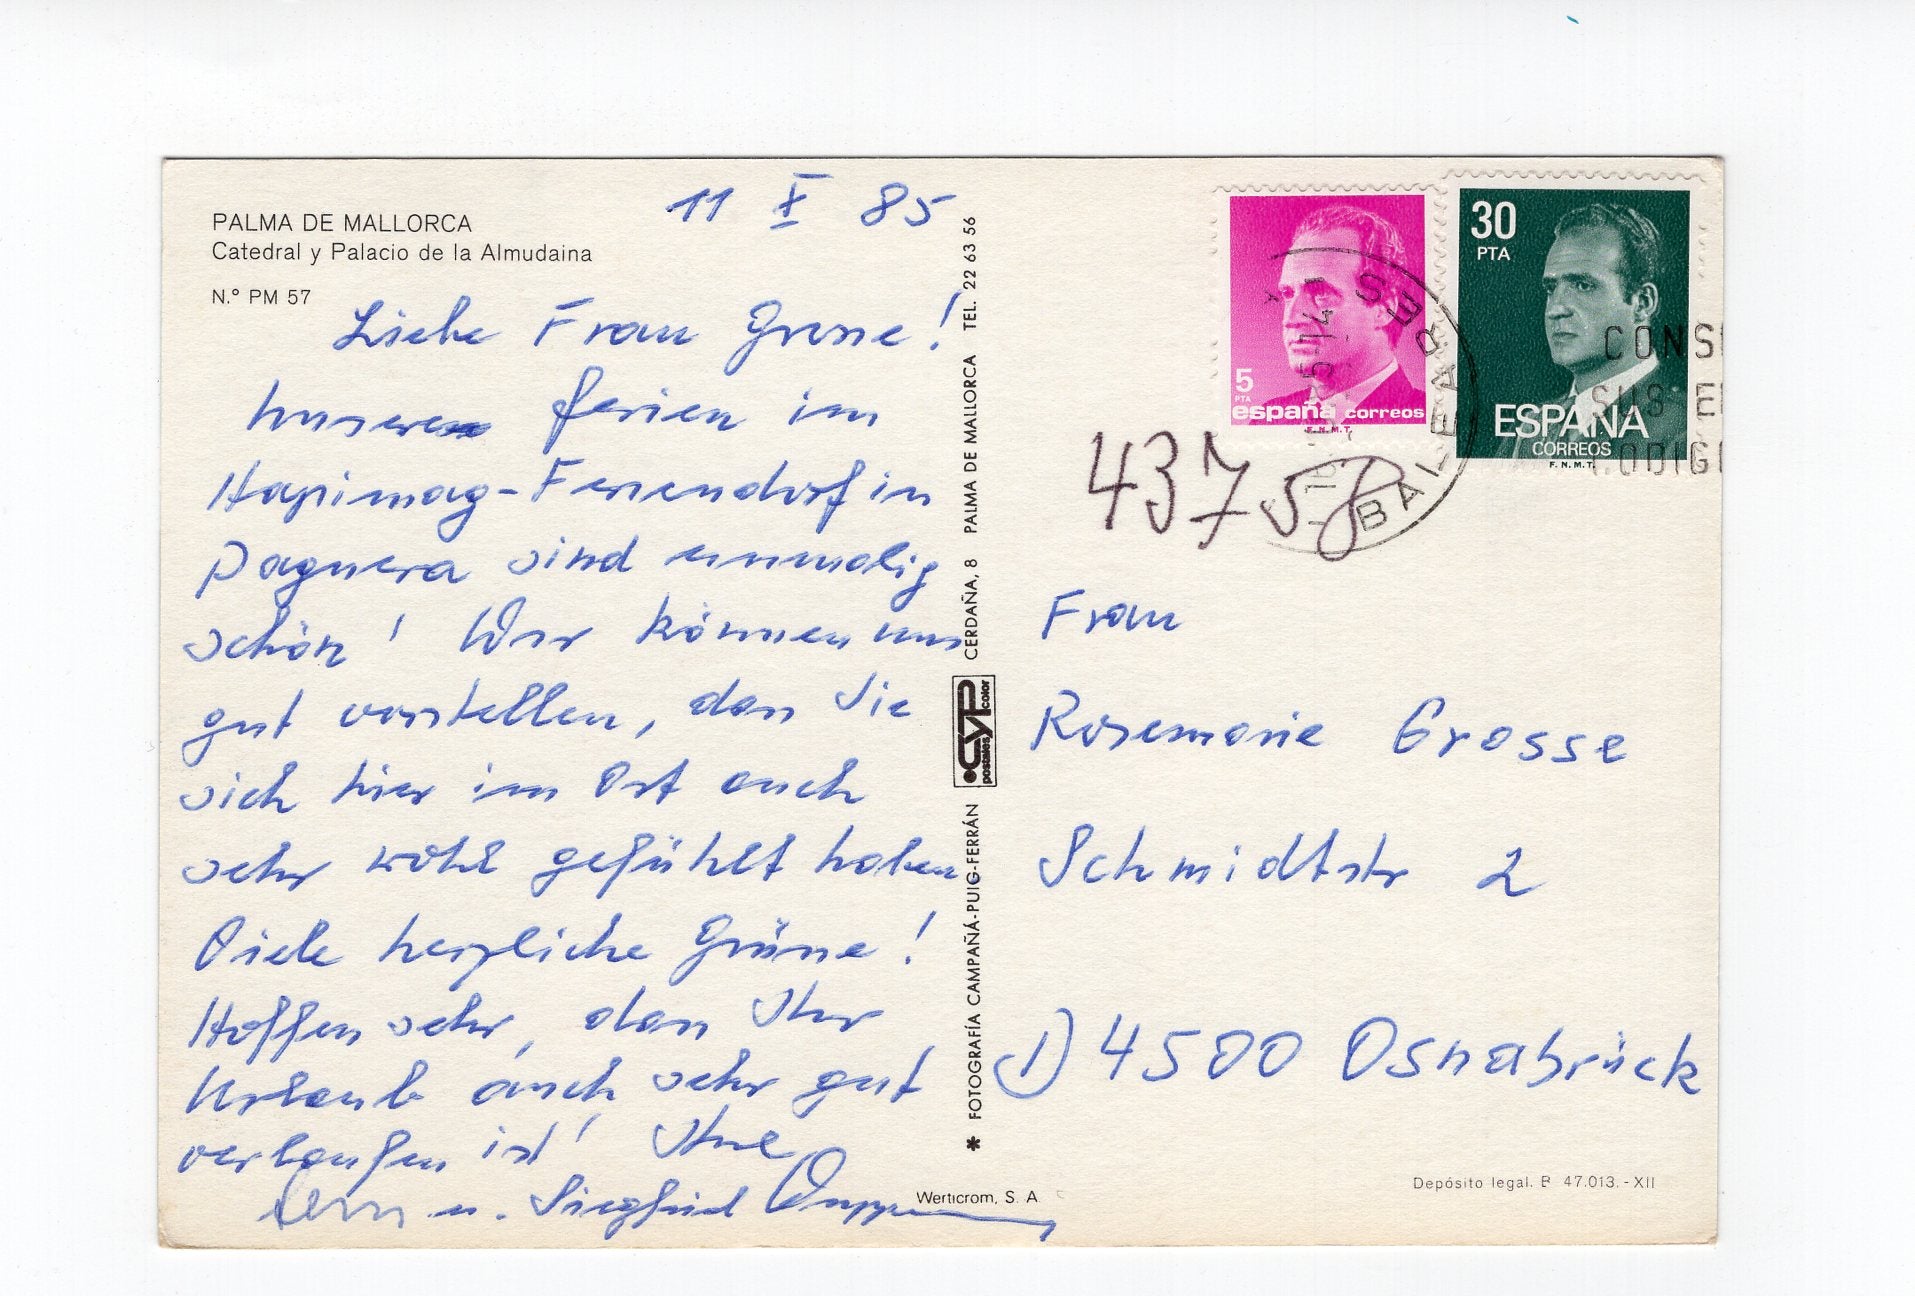 PALMA DE MALLORCA
Catedral y Palacio de la Almudaina
N.º PM 57
11 X 85
Liebe Frau Grosse!
Unsere Ferien im
Hapimag-Feriendorf in
Paguera sind einmalig
schön! Wir können uns
gut vorstellen, dass Sie
sich hier im Ort auch
sehr wohl gefühlt haben
Viele herzliche Grüsse!
Hoffen sehr, dass Ihr
Urlaub auch sehr gut
verlaufen ist! Ihre
u. Siegfried
* FOTOGRAFÍA CAMPAÑÁ-PUIG-FERRÁN postales CYP color CERDAÑA, 8 PALMA DE MALLORCA TEL. 22 63 56
Werticrom, S. A.
5
PTA
españa correos
F.N.M.T.
30
PTA
ESPAÑA
CORREOS
F.N.M.T.
BALEARES
CONS
SUS E
CODIG
Frau
Rosemarie Grosse
Schmidtstr 2
D 4500 Osnabrück
Depósito legal. B 47.013.-XII